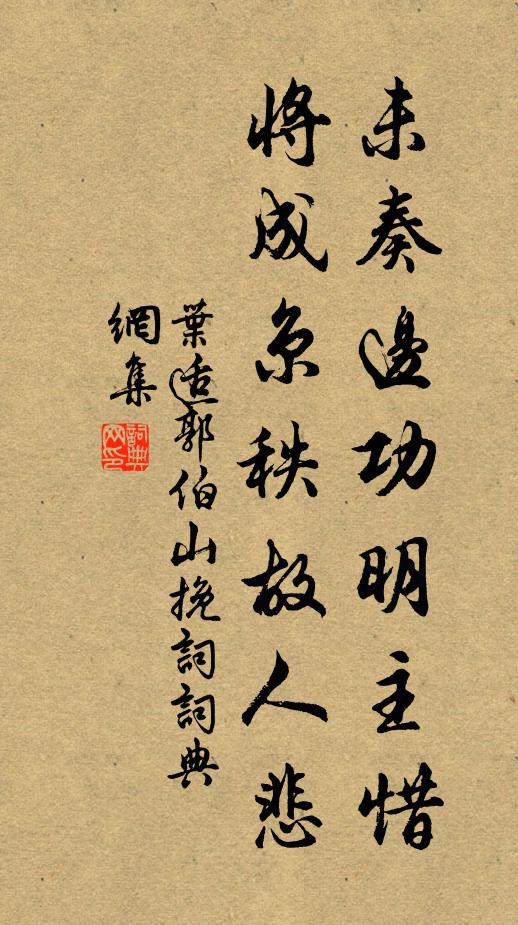 未奏邊功明主惜
將成京秩故人悲
葉适郭伯山挽詞詞典
網集
詞典
网印